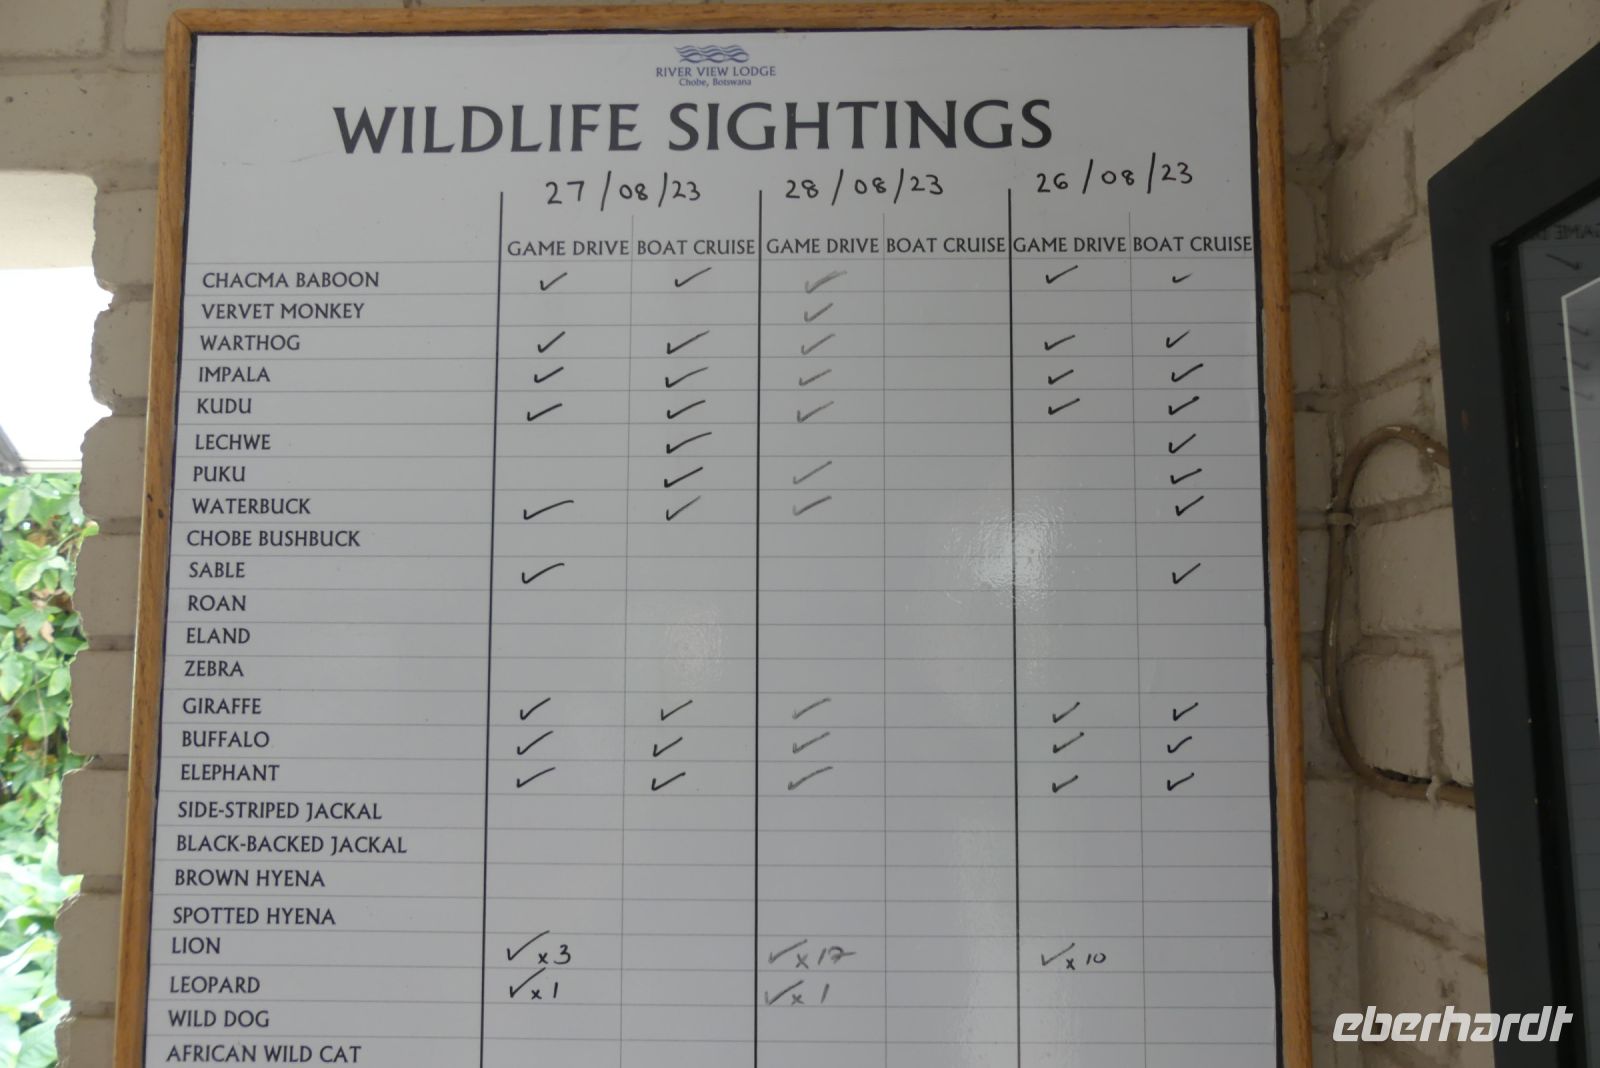 RIVER VIEW LODGE
Chobe, Botswana
WILDLIFE SIGHTINGS
27/08/23 28/08/23 26/08/23
GAME DRIVE BOAT CRUISE GAME DRIVE BOAT CRUISE GAME DRIVE BOAT CRUISE
CHACMA BABOON ✓ ✓ ✓ ✓ ✓
VERVET MONKEY ✓
WARTHOG ✓ ✓ ✓ ✓ ✓
IMPALA ✓ ✓ ✓ ✓ ✓
KUDU ✓ ✓ ✓ ✓ ✓
LECHWE ✓ ✓
PUKU ✓ ✓ ✓
WATERBUCK ✓ ✓ ✓ ✓
CHOBE BUSHBUCK
SABLE ✓ ✓
ROAN
ELAND
ZEBRA
GIRAFFE ✓ ✓ ✓ ✓ ✓
BUFFALO ✓ ✓ ✓ ✓ ✓
ELEPHANT ✓ ✓ ✓ ✓ ✓
SIDE-STRIPED JACKAL
BLACK-BACKED JACKAL
BROWN HYENA
SPOTTED HYENA
LION ✓x3 ✓x17 ✓x10
LEOPARD ✓x1 ✓x1
WILD DOG
AFRICAN WILD CAT
eberhardt